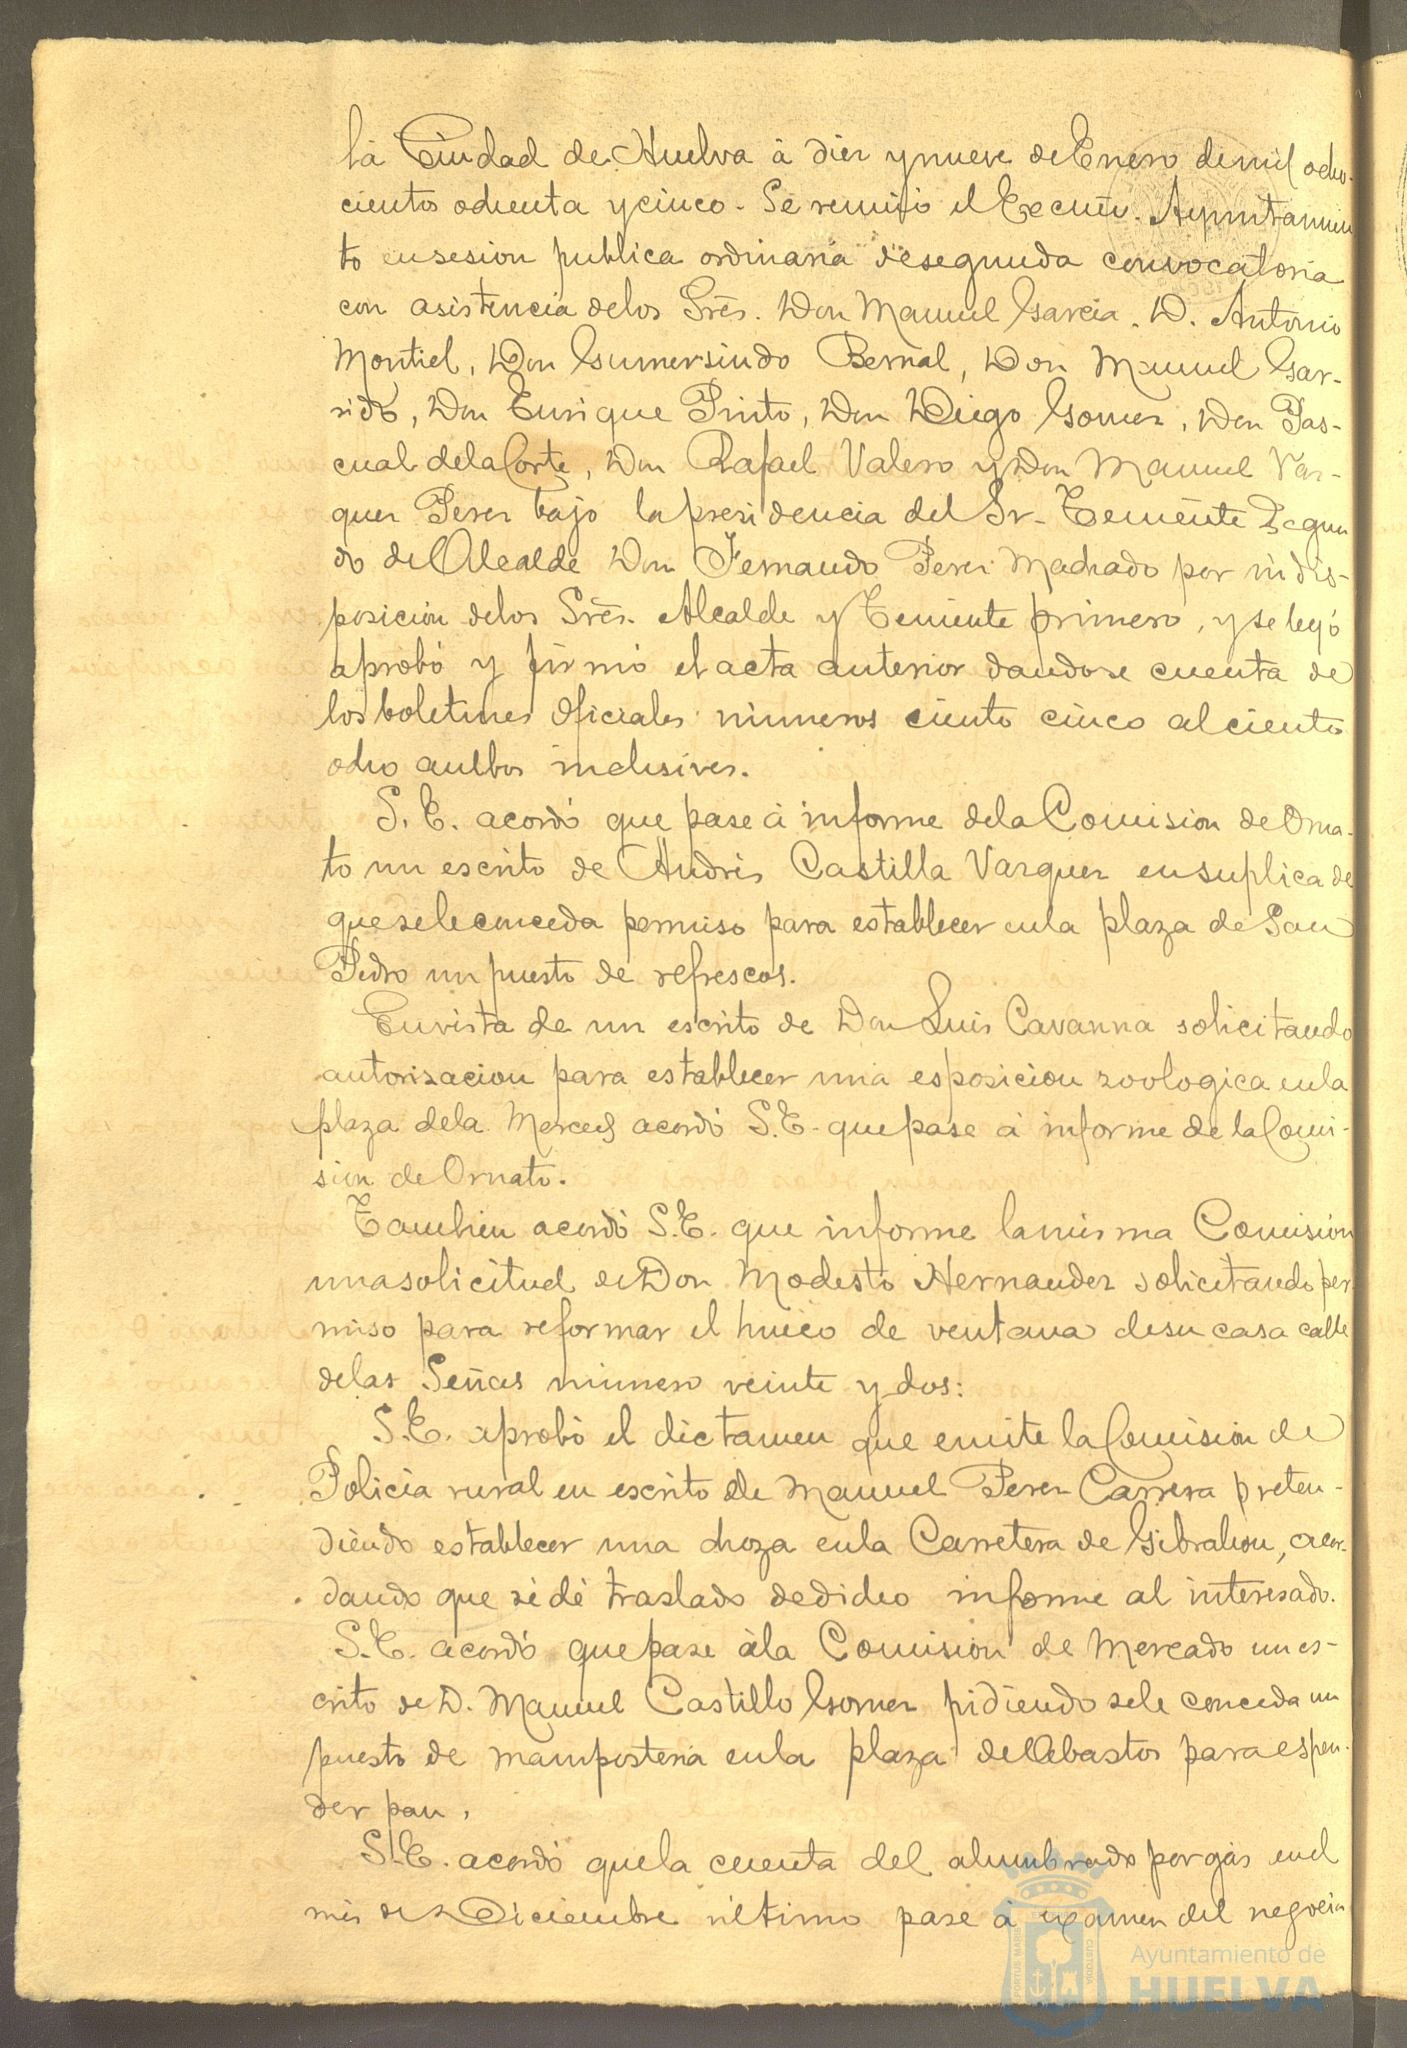 la Ciudad de Huelva á diez y nueve de Enero de mil ocho-
cientos ochenta y cinco. Se reunió el Excmo. Ayuntamien
to en sesion publica ordinaria de segunda convocatoria
con asistencia de los Sres. Don Manuel Garcia, D. Antonio
Montiel, Don Gumersindo Bernal, Don Manuel Gar-
rido, Don Enrique Pinto, Don Diego Gomez, Don Pas-
cual de la Corte, Don Rafael Valero y Don Manuel Vaz-
quez Perez bajo la presidencia del Sr. Teniente Segun
do de Alcalde Don Fernando Perez Machado por indis-
posicion de los Sres. Alcalde y Teniente primero, y se leyó
aprobó y firmó el acta anterior dandose cuenta de
los boletines oficiales numeros ciento cinco al ciento
ocho ambos inclusives.
S. E. acordó que pase á informe de la Comision de Orna-
to un escrito de Andrés Castilla Vazquez en suplica de
que se le conceda permiso para establecer en la plaza de San
Pedro un puesto de refrescos.
En vista de un escrito de Don Luis Cavanna solicitando
autorizacion para establecer una esposicion zoologica en la
plaza de la Merced acordó S. E. que pase á informe de la Comi-
sion de Ornato.
Tambien acordó S. E. que informe la misma Comision
una solicitud de Don Modesto Hernandez solicitando per
miso para reformar el hueco de ventana de su casa calle
de las Señas número veinte y dos:
S. E. aprobó el dictamen que emite la Comision de
Policia rural en escrito de Manuel Perez Carrera preten-
diendo establecer una choza en la Carretera de Gibraleon, acor-
dando que se dé traslado de dicho informe al interesado.
S. E. acordó que pase á la Comision de Mercado un es-
crito de D. Manuel Castillo Gomez pidiendo se le conceda un
puesto de mamposteria en la plaza de Abastos para espen-
der pan.
S. E. acordó que la cuenta del alumbrado por gas en el
mes de Diciembre último pase á examen del negocia
Ayuntamiento de
HUELVA